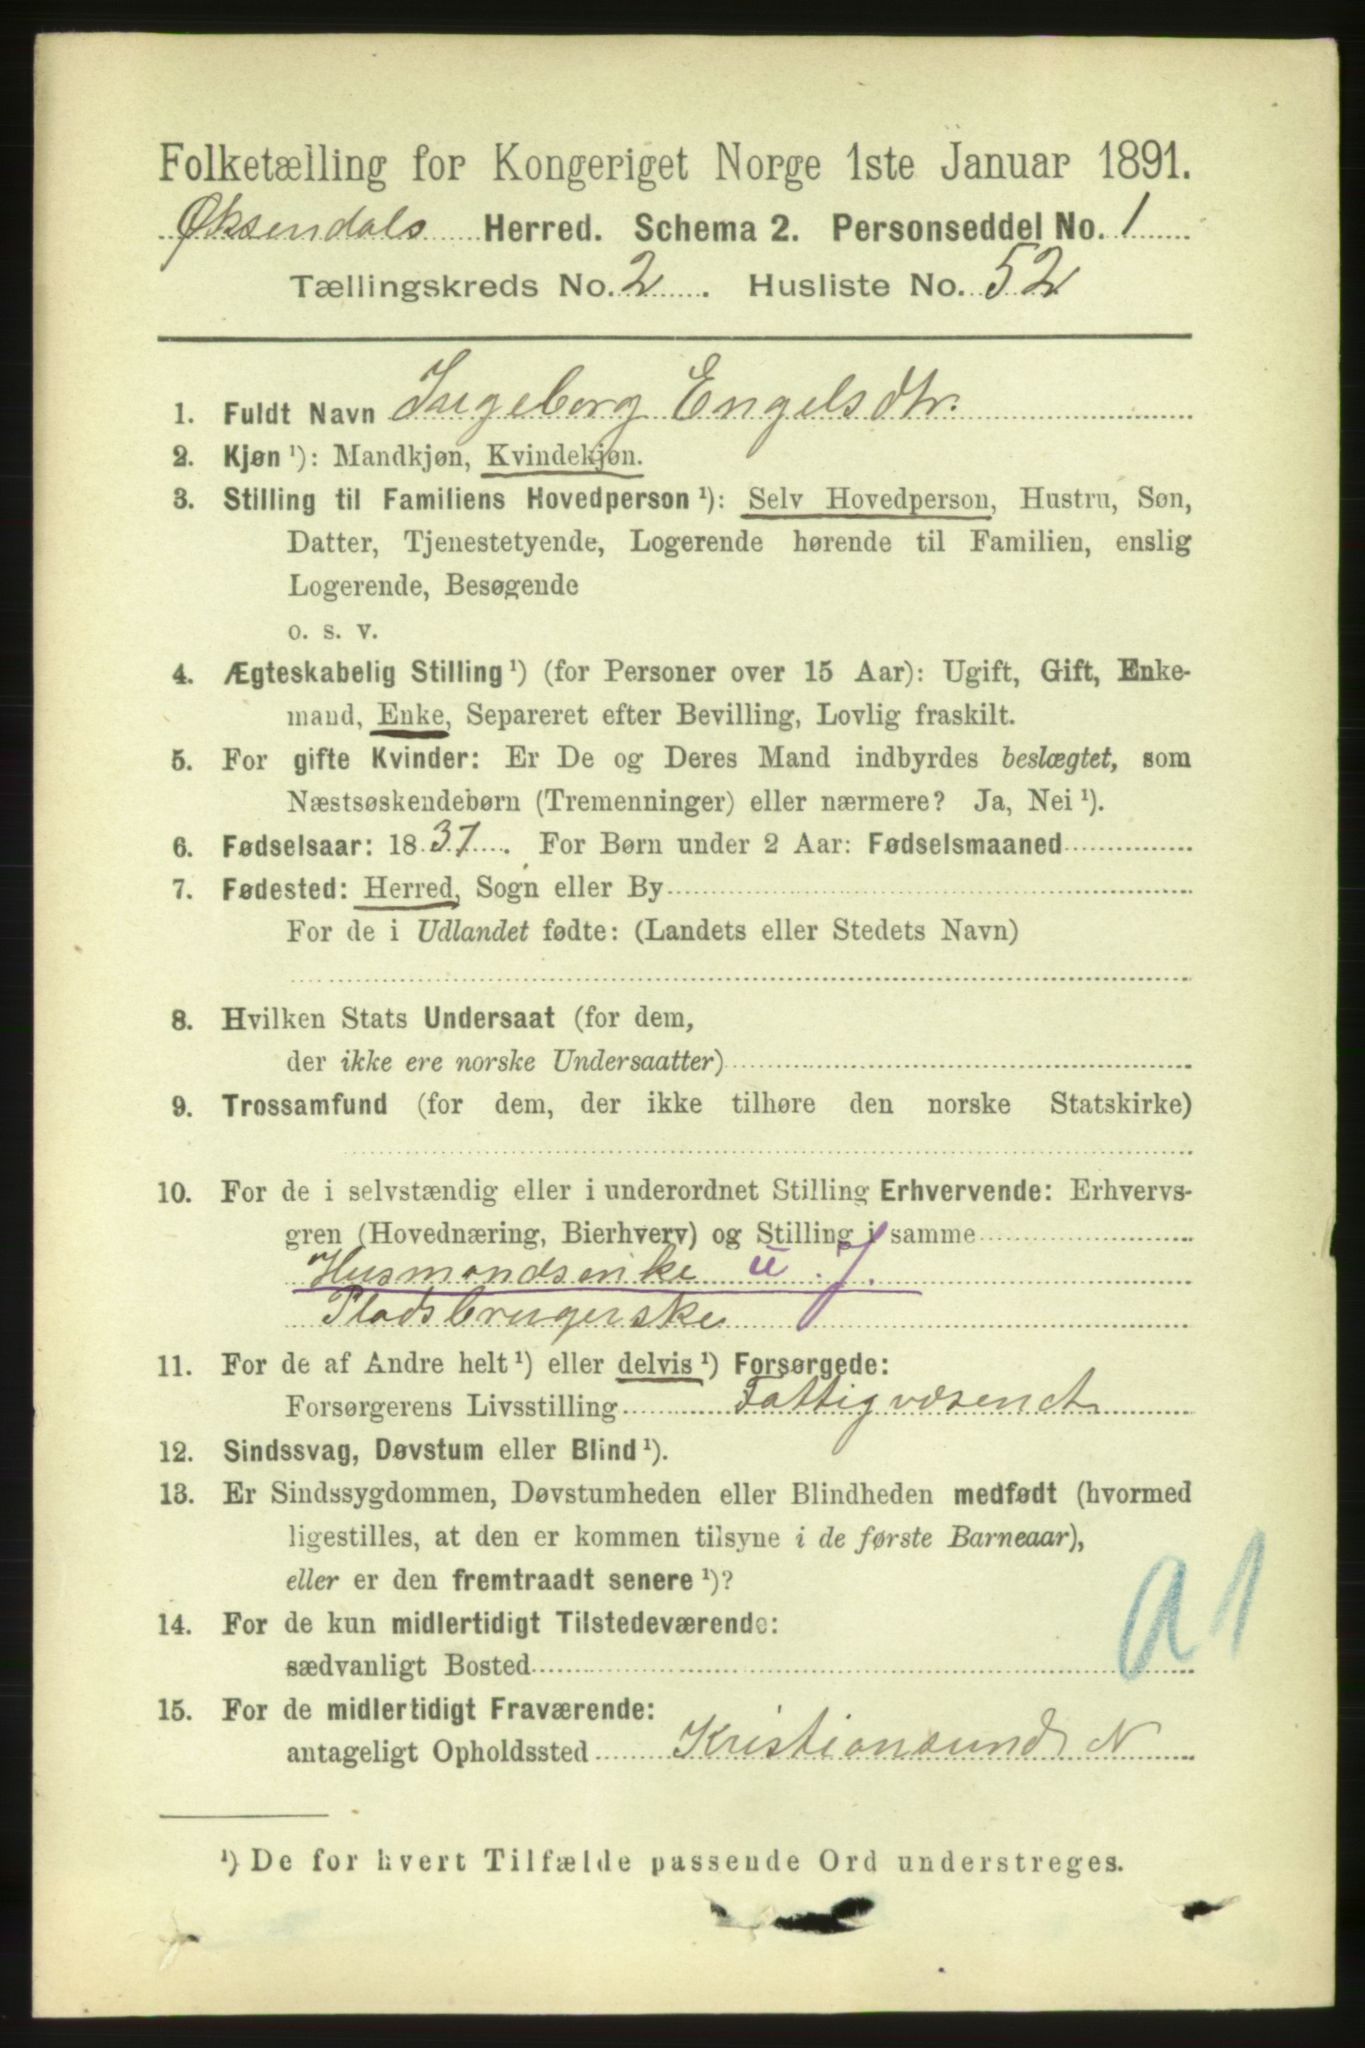 Folketælling for Kongeriget Norge 1ste Januar 1891.
Øksendals Herred. Schema 2. Personseddel No. 1
Tællingskreds No. 2. Husliste No. 52
1. Fuldt Navn Ingeborg Engelsdtr.
2. Kjøn ¹): Mandkjøn, Kvindekjøn.
3. Stilling til Familiens Hovedperson ¹): Selv Hovedperson, Hustru, Søn,
Datter, Tjenestetyende, Logerende hørende til Familien, enslig
Logerende, Besøgende
o. s. v.
4. Ægteskabelig Stilling ¹) (for Personer over 15 Aar): Ugift, Gift, Enke-
mand, Enke, Separeret efter Bevilling, Lovlig fraskilt.
5. For gifte Kvinder: Er De og Deres Mand indbyrdes beslægtet, som
Næstsøskendebørn (Tremenninger) eller nærmere? Ja, Nei ¹).
6. Fødselsaar: 1837. For Børn under 2 Aar: Fødselsmaaned
7. Fødested: Herred, Sogn eller By
For de i Udlandet fødte: (Landets eller Stedets Navn)
8. Hvilken Stats Undersaat (for dem,
der ikke ere norske Undersaatter)
9. Trossamfund (for dem, der ikke tilhøre den norske Statskirke)
10. For de i selvstændig eller i underordnet Stilling Erhvervende: Erhvervs-
gren (Hovednæring, Bierhverv) og Stilling i samme
Husmandsenke u. J.
Pladsbrugerske
11. For de af Andre helt ¹) eller delvis ¹) Forsørgede:
Forsørgerens Livsstilling Fattigvæsenet
12. Sindssvag, Døvstum eller Blind ¹).
13. Er Sindssygdommen, Døvstumheden eller Blindheden medfødt (hvormed
ligestilles, at den er kommen tilsyne i de første Barneaar),
eller er den fremtraadt senere ¹)?
14. For de kun midlertidigt Tilstedeværende:
sædvanligt Bosted
a 1
15. For de midlertidigt Fraværende:
antageligt Opholdssted Kristiansund N
¹) De for hvert Tilfælde passende Ord understreges.